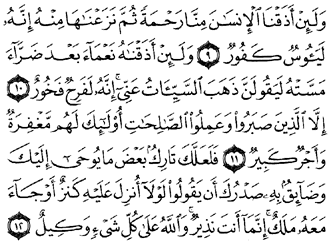 وَلَئِنْ أَذَقْنَا ٱلْإِنسَٰنَ مِنَّا رَحْمَةً ثُمَّ نَزَعْنَٰهَا مِنْهُ إِنَّهُۥ
لَيَـُٔوسٌ كَفُورٌ ٩ وَلَئِنْ أَذَقْنَٰهُ نَعْمَآءَ بَعْدَ ضَرَّآءَ
مَسَّتْهُ لَيَقُولَنَّ ذَهَبَ ٱلسَّيِّـَٔاتُ عَنِّىٓ إِنَّهُۥ لَفَرِحٌ فَخُورٌ ١٠
إِلَّا ٱلَّذِينَ صَبَرُوا۟ وَعَمِلُوا۟ ٱلصَّٰلِحَٰتِ أُو۟لَٰٓئِكَ لَهُم مَّغْفِرَةٌ
وَأَجْرٌ كَبِيرٌ ١١ فَلَعَلَّكَ تَارِكٌۢ بَعْضَ مَا يُوحَىٰٓ إِلَيْكَ
وَضَآئِقٌۢ بِهِۦ صَدْرُكَ أَن يَقُولُوا۟ لَوْلَآ أُنزِلَ عَلَيْهِ كَنزٌ أَوْ جَآءَ
مَعَهُۥ مَلَكٌ إِنَّمَآ أَنتَ نَذِيرٌ وَٱللَّهُ عَلَىٰ كُلِّ شَىْءٍ وَكِيلٌ ١٢